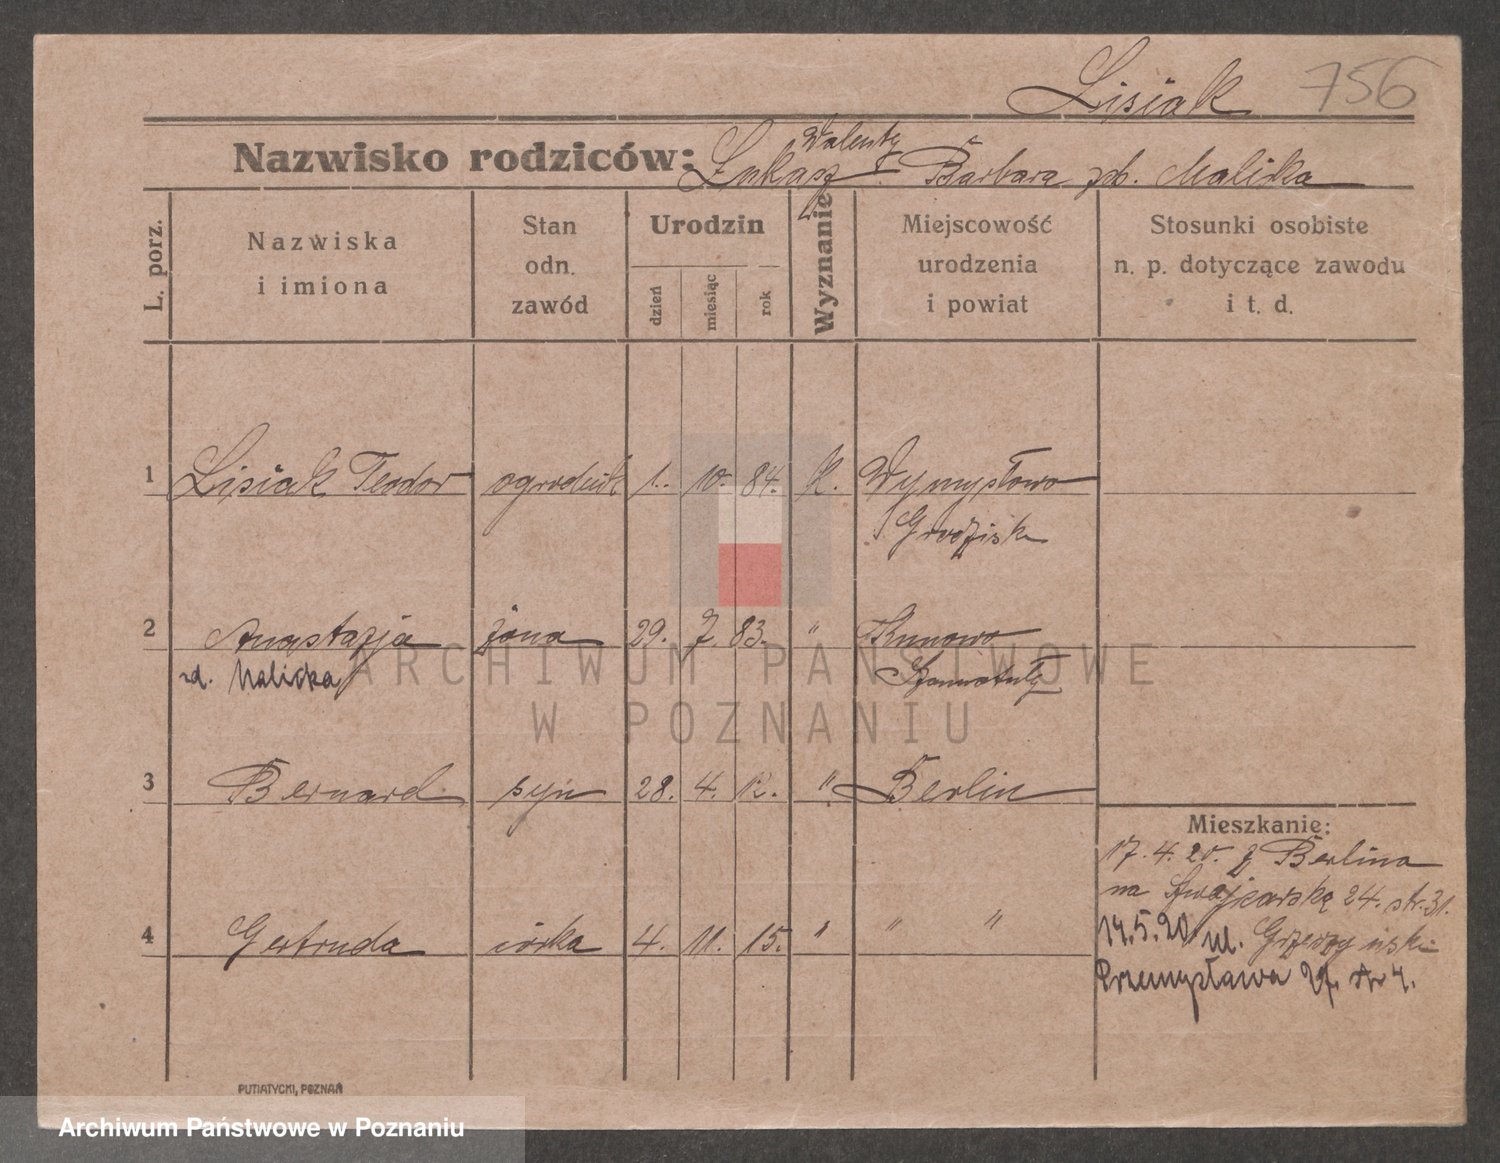 Lisiak 756
Nazwisko rodziców: Łukasz Walenty Barbara Malicka
L. porz.
Nazwiska i imiona
Stan odn. zawód
Urodzin
dzień miesiąc rok
Wyznanie
Miejscowość urodzenia i powiat
Stosunki osobiste n. p. dotyczące zawodu i t. d.
1 Lisiak Teodor ogrodnik 1. 10. 84. K. Wymysłowo
Grodzisk
2 Anastazja żona 29. 7. 83. " Kunowo
Malicka Szamotuły
3 Bernard syn 28. 4. 12. " Berlin
Mieszkanie:
17. 4. 20. z Berlina
na Szwajcarską 24. str. 31.
4 Gertruda córka 4. 11. 15. " " "
14.5.20 ul.
Przemysława 27.
PUTIATYCKI, POZNAŃ
ARCHIWUM PAŃSTWOWE
W POZNANIU
Archiwum Państwowe w Poznaniu